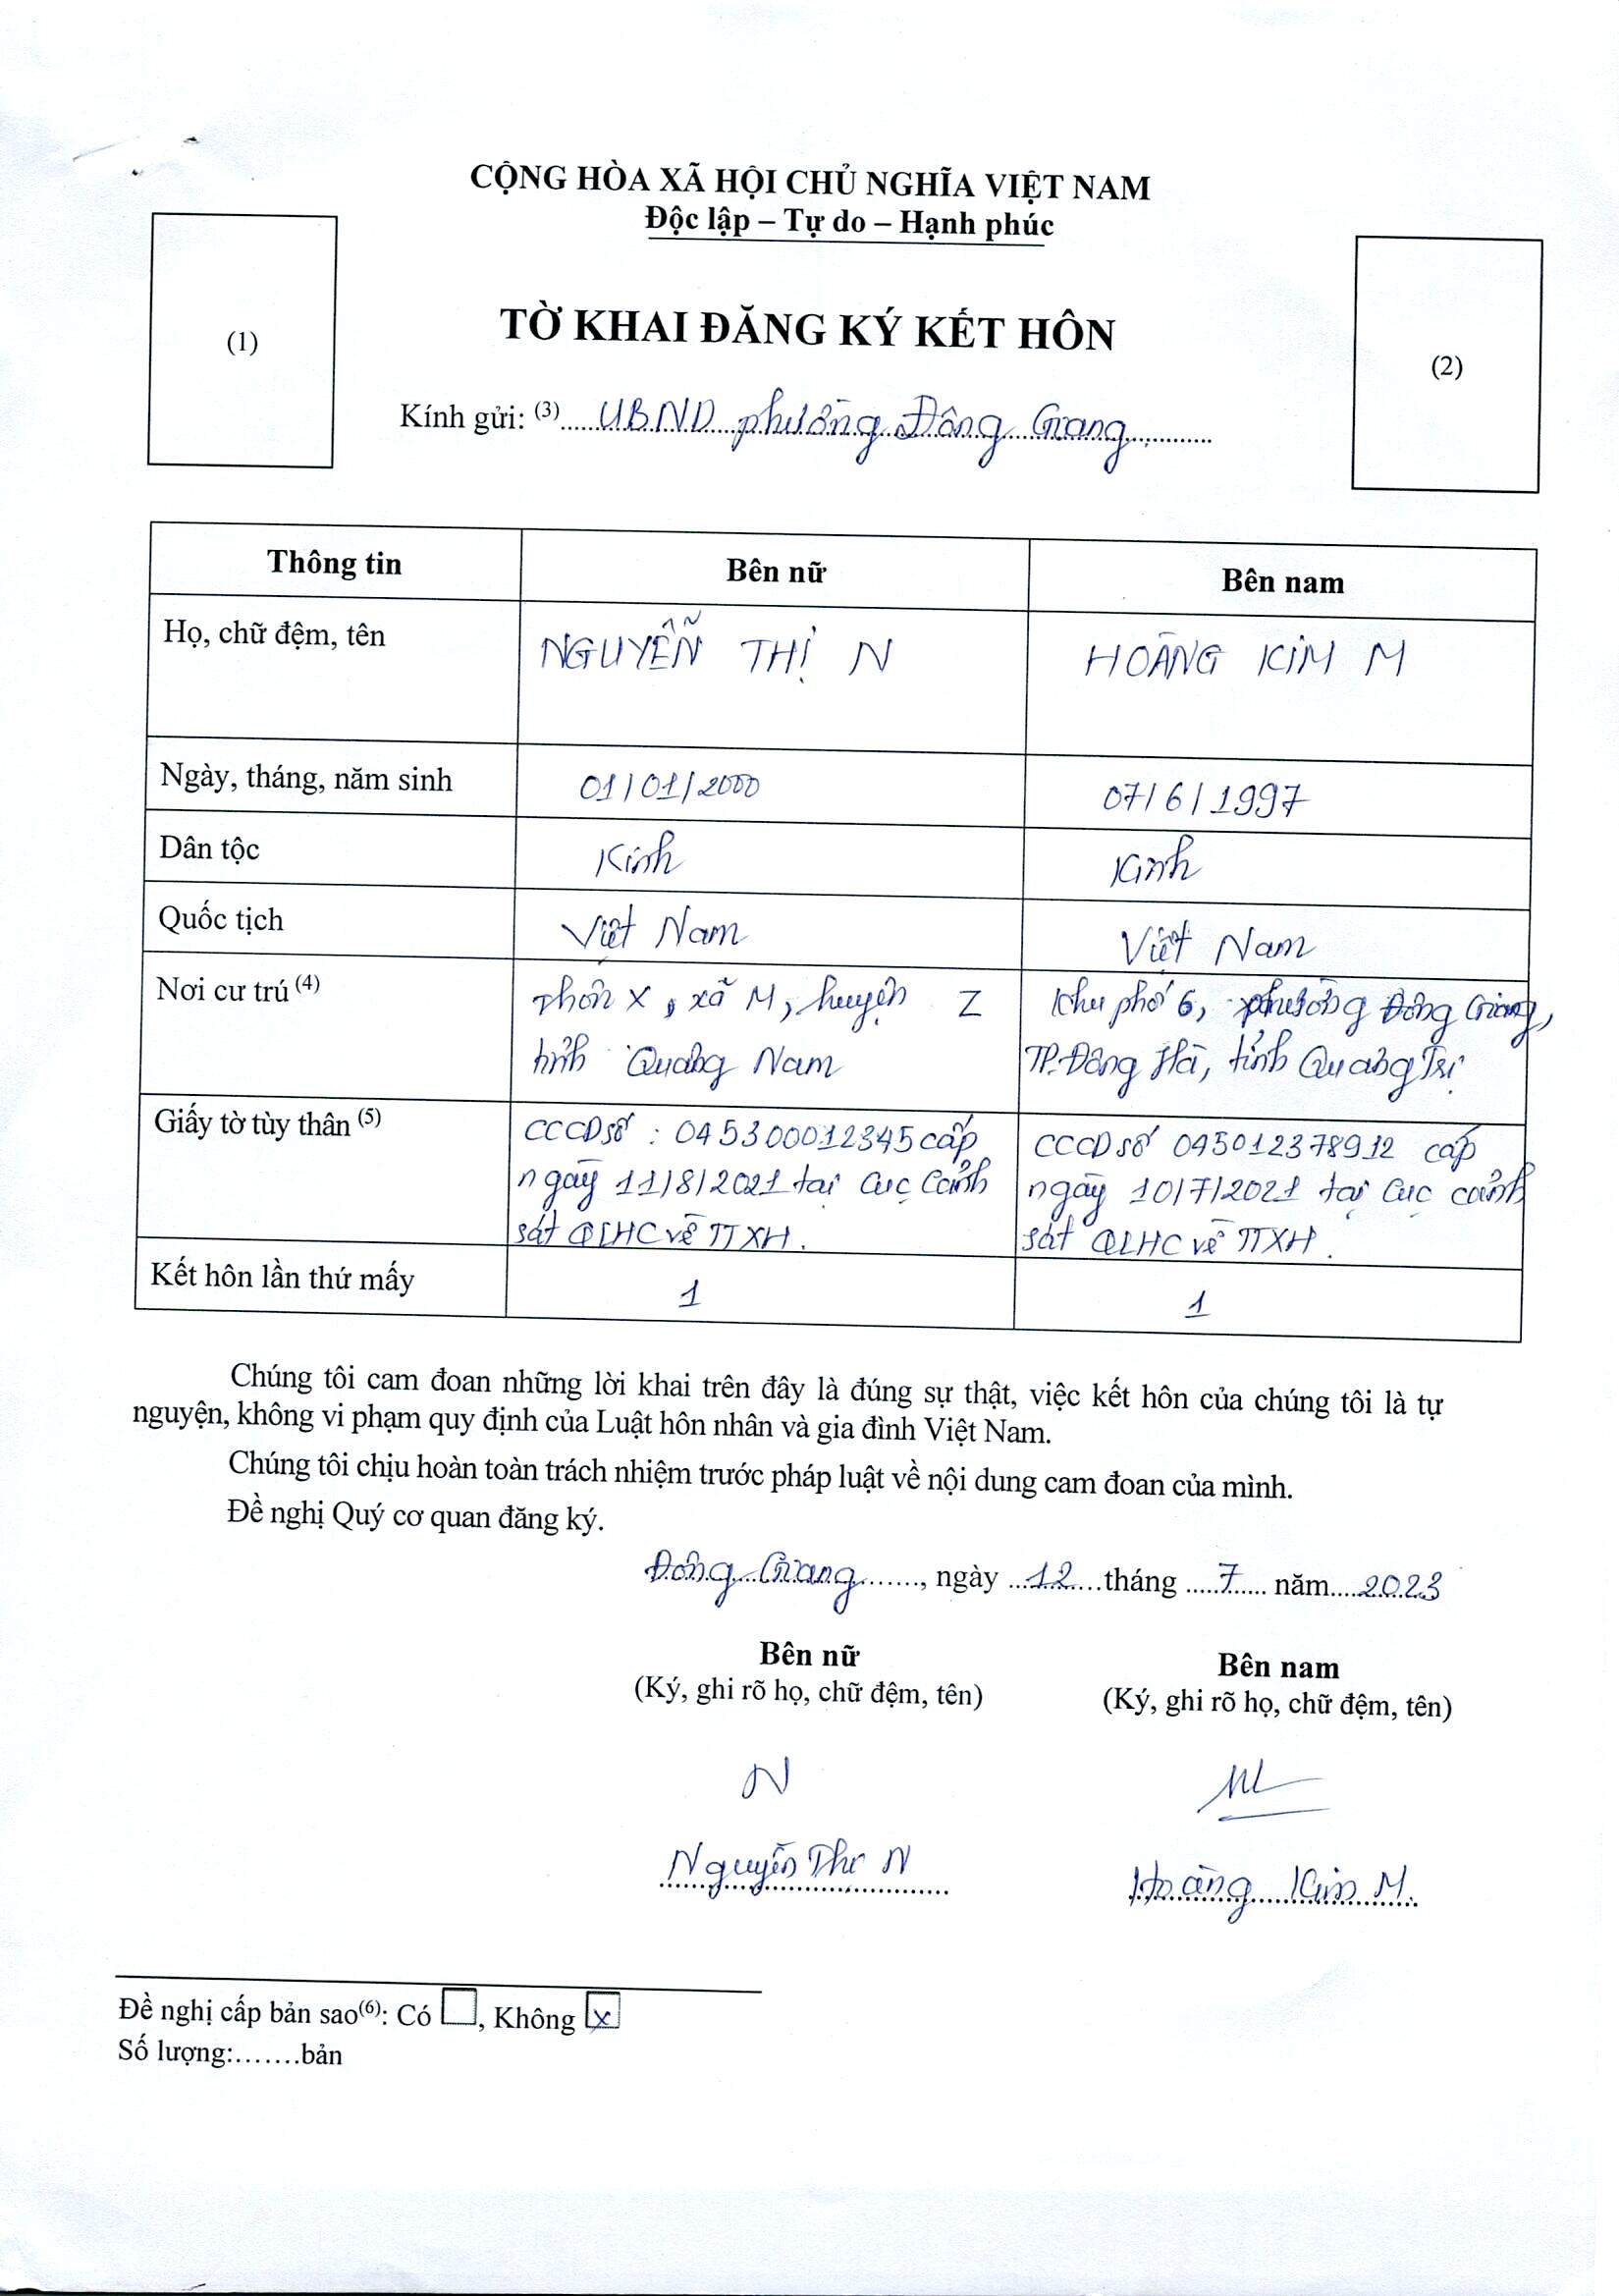 CỘNG HÒA XÃ HỘI CHỦ NGHĨA VIỆT NAM
Độc lập – Tự do – Hạnh phúc
(1)
(2)
TỜ KHAI ĐĂNG KÝ KẾT HÔN
Kính gửi: (3) UBND phường Đông Giang
Thông tin Bên nữ Bên nam
Họ, chữ đệm, tên NGUYỄN THỊ N HOÀNG KIM M
Ngày, tháng, năm sinh 01/01/2000 07/6/1997
Dân tộc Kinh Kinh
Quốc tịch Việt Nam Việt Nam
Nơi cư trú (4) Thôn X, xã M, huyện Z Khu phố 6, phường Đông Giang,
tỉnh Quảng Nam TP.Đông Hà, tỉnh Quảng Trị
Giấy tờ tùy thân (5) CCCD số: 045300012345 cấp CCCD số 045012378912 cấp
ngày 11/8/2021 tại Cục Cảnh ngày 10/7/2021 tại Cục cảnh
sát QLHC về TTXH. sát QLHC về TTXH.
Kết hôn lần thứ mấy 1 1
Chúng tôi cam đoan những lời khai trên đây là đúng sự thật, việc kết hôn của chúng tôi là tự
nguyện, không vi phạm quy định của Luật hôn nhân và gia đình Việt Nam.
Chúng tôi chịu hoàn toàn trách nhiệm trước pháp luật về nội dung cam đoan của mình.
Đề nghị Quý cơ quan đăng ký.
Đông Giang......., ngày ...12...tháng .....7..... năm.....2023
Bên nữ Bên nam
(Ký, ghi rõ họ, chữ đệm, tên) (Ký, ghi rõ họ, chữ đệm, tên)
N
Nguyễn Thị N Hoàng Kim M.
Đề nghị cấp bản sao(6): Có , Không x
Số lượng:.......bản